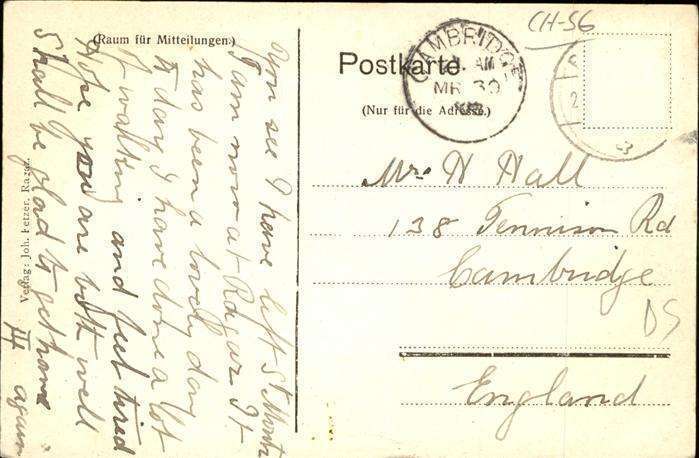 (Raum für Mitteilungen)
You see I have left St Moritz
I am now at Ragaz It
has been a lovely day
to day I have done a lot
of walking and feel tired
Hope you are both well
Shall be glad to get home
again
Verlag: Joh. Fetzer, Ragaz.
CH-56
Postkarte
(Nur für die Adresse.)
CAMBRIDGE
AM
MR 30
Mrs H Hall
138 Tennison Rd
Cambridge
England
DS